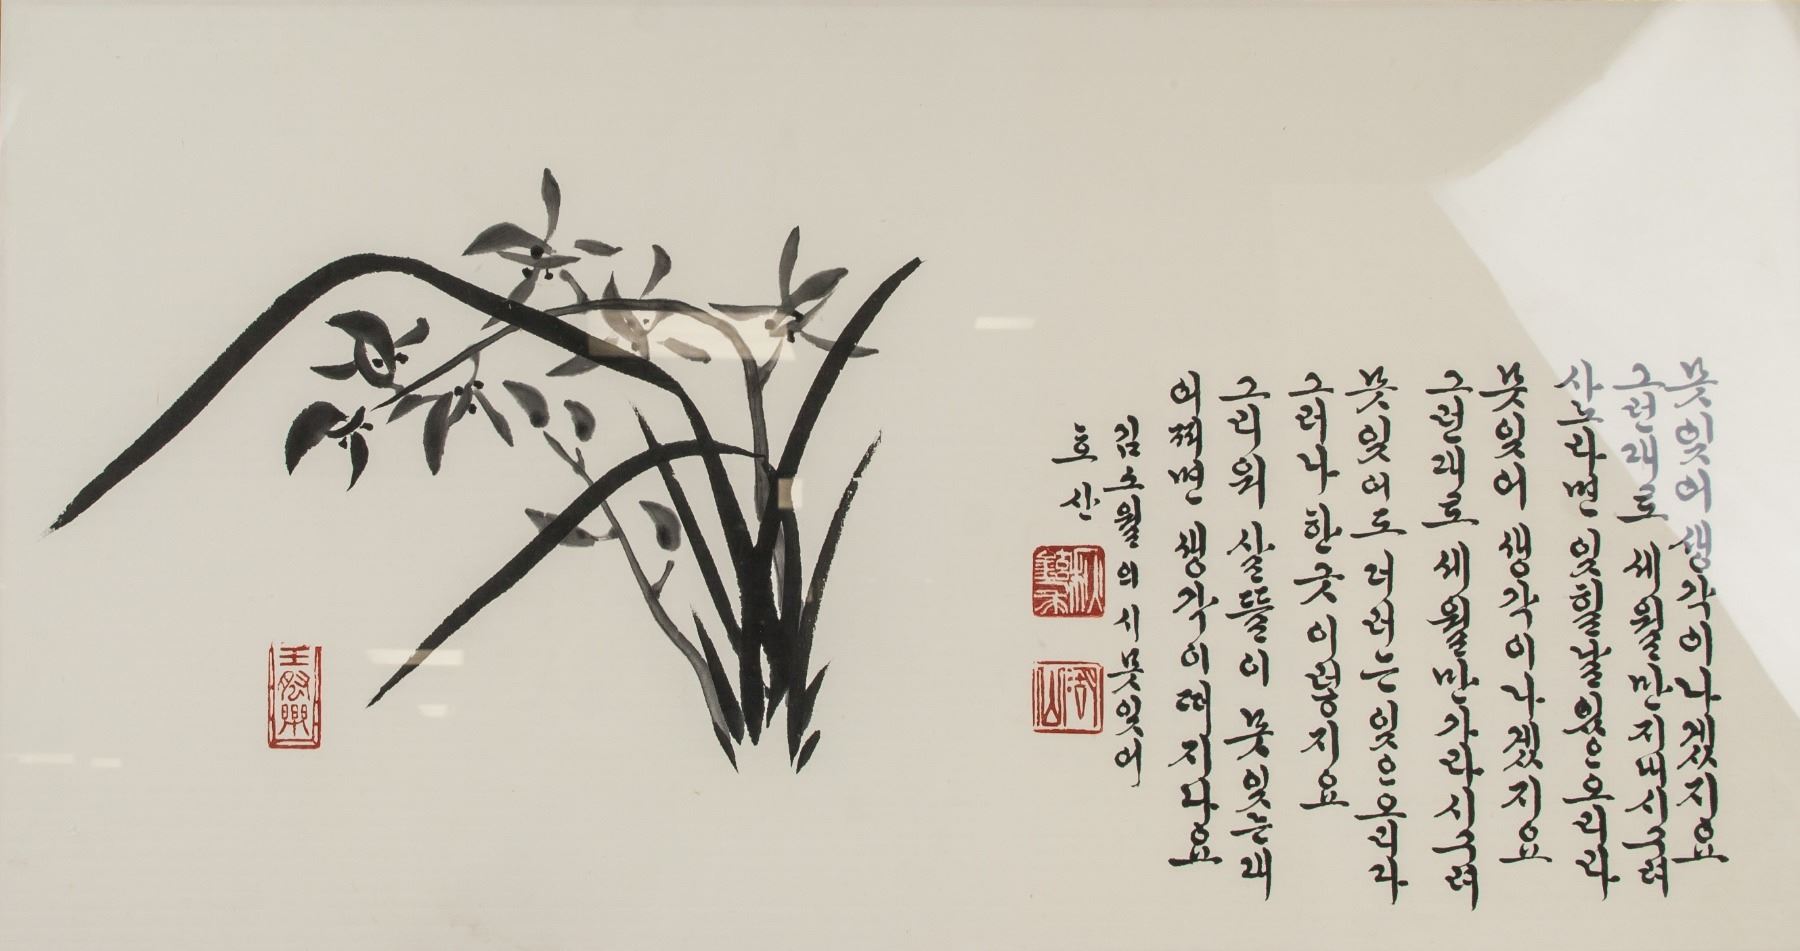 못잊어 생각이 나겠지요
그런대로 세월만 지내시구려
사노라면 잊힐날 있으오리다
못잊어 생각이 나겠지요
그런대로 세월만 가라시구려
못잊어도 더러는 잊으오리다
그러나 한긋 이렇지요
그리워 살뜰이 못잊는데
어찌면 생각이 떠지나요
김소월의 시 못잊어
호산
湖山